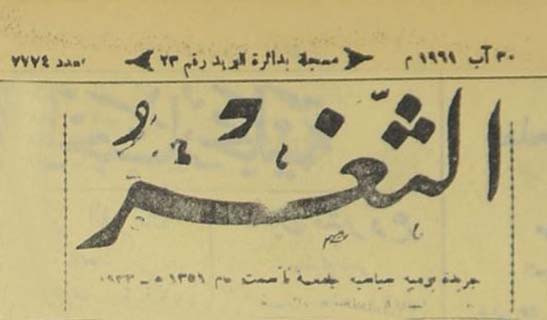 ٣٠ آب ١٩٦٩ م مسجلة بدائرة البريد رقم ٢٣ العدد ٧٧٧٤
الثَّغْرُ
جريدة يومية سياسية جامعة تأسست عام ١٣٥١ ه - ١٩٣٣